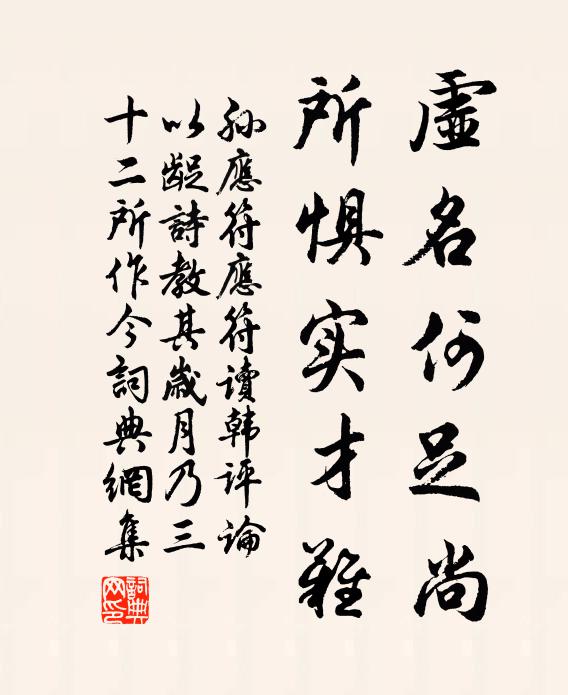 虚名何足尚
所惧实才難
孫應符應符讀韩評論
以齪詩教其歲月乃三
十二所作今詞典網集
詞典网印